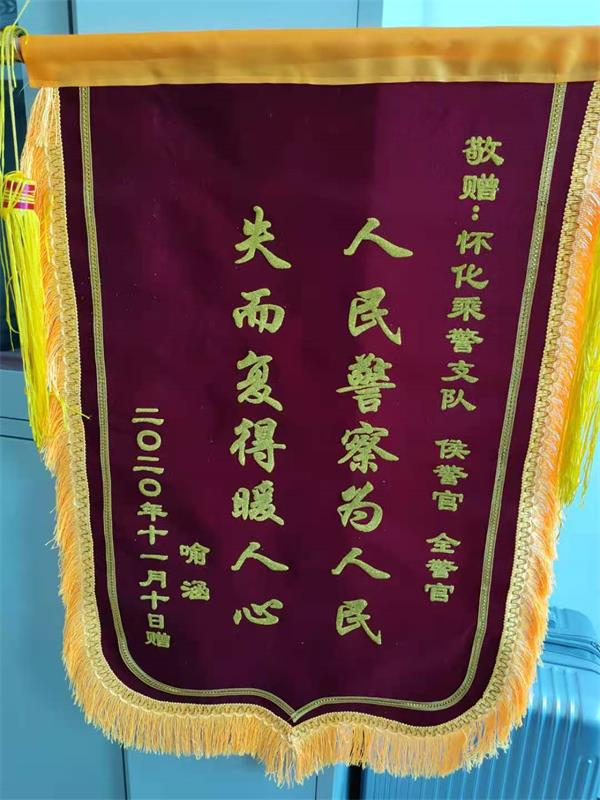 敬赠：怀化乘警支队 侯警官 全警官
人民警察为人民
失而复得暖人心
喻涵
二〇二〇年十一月十日赠